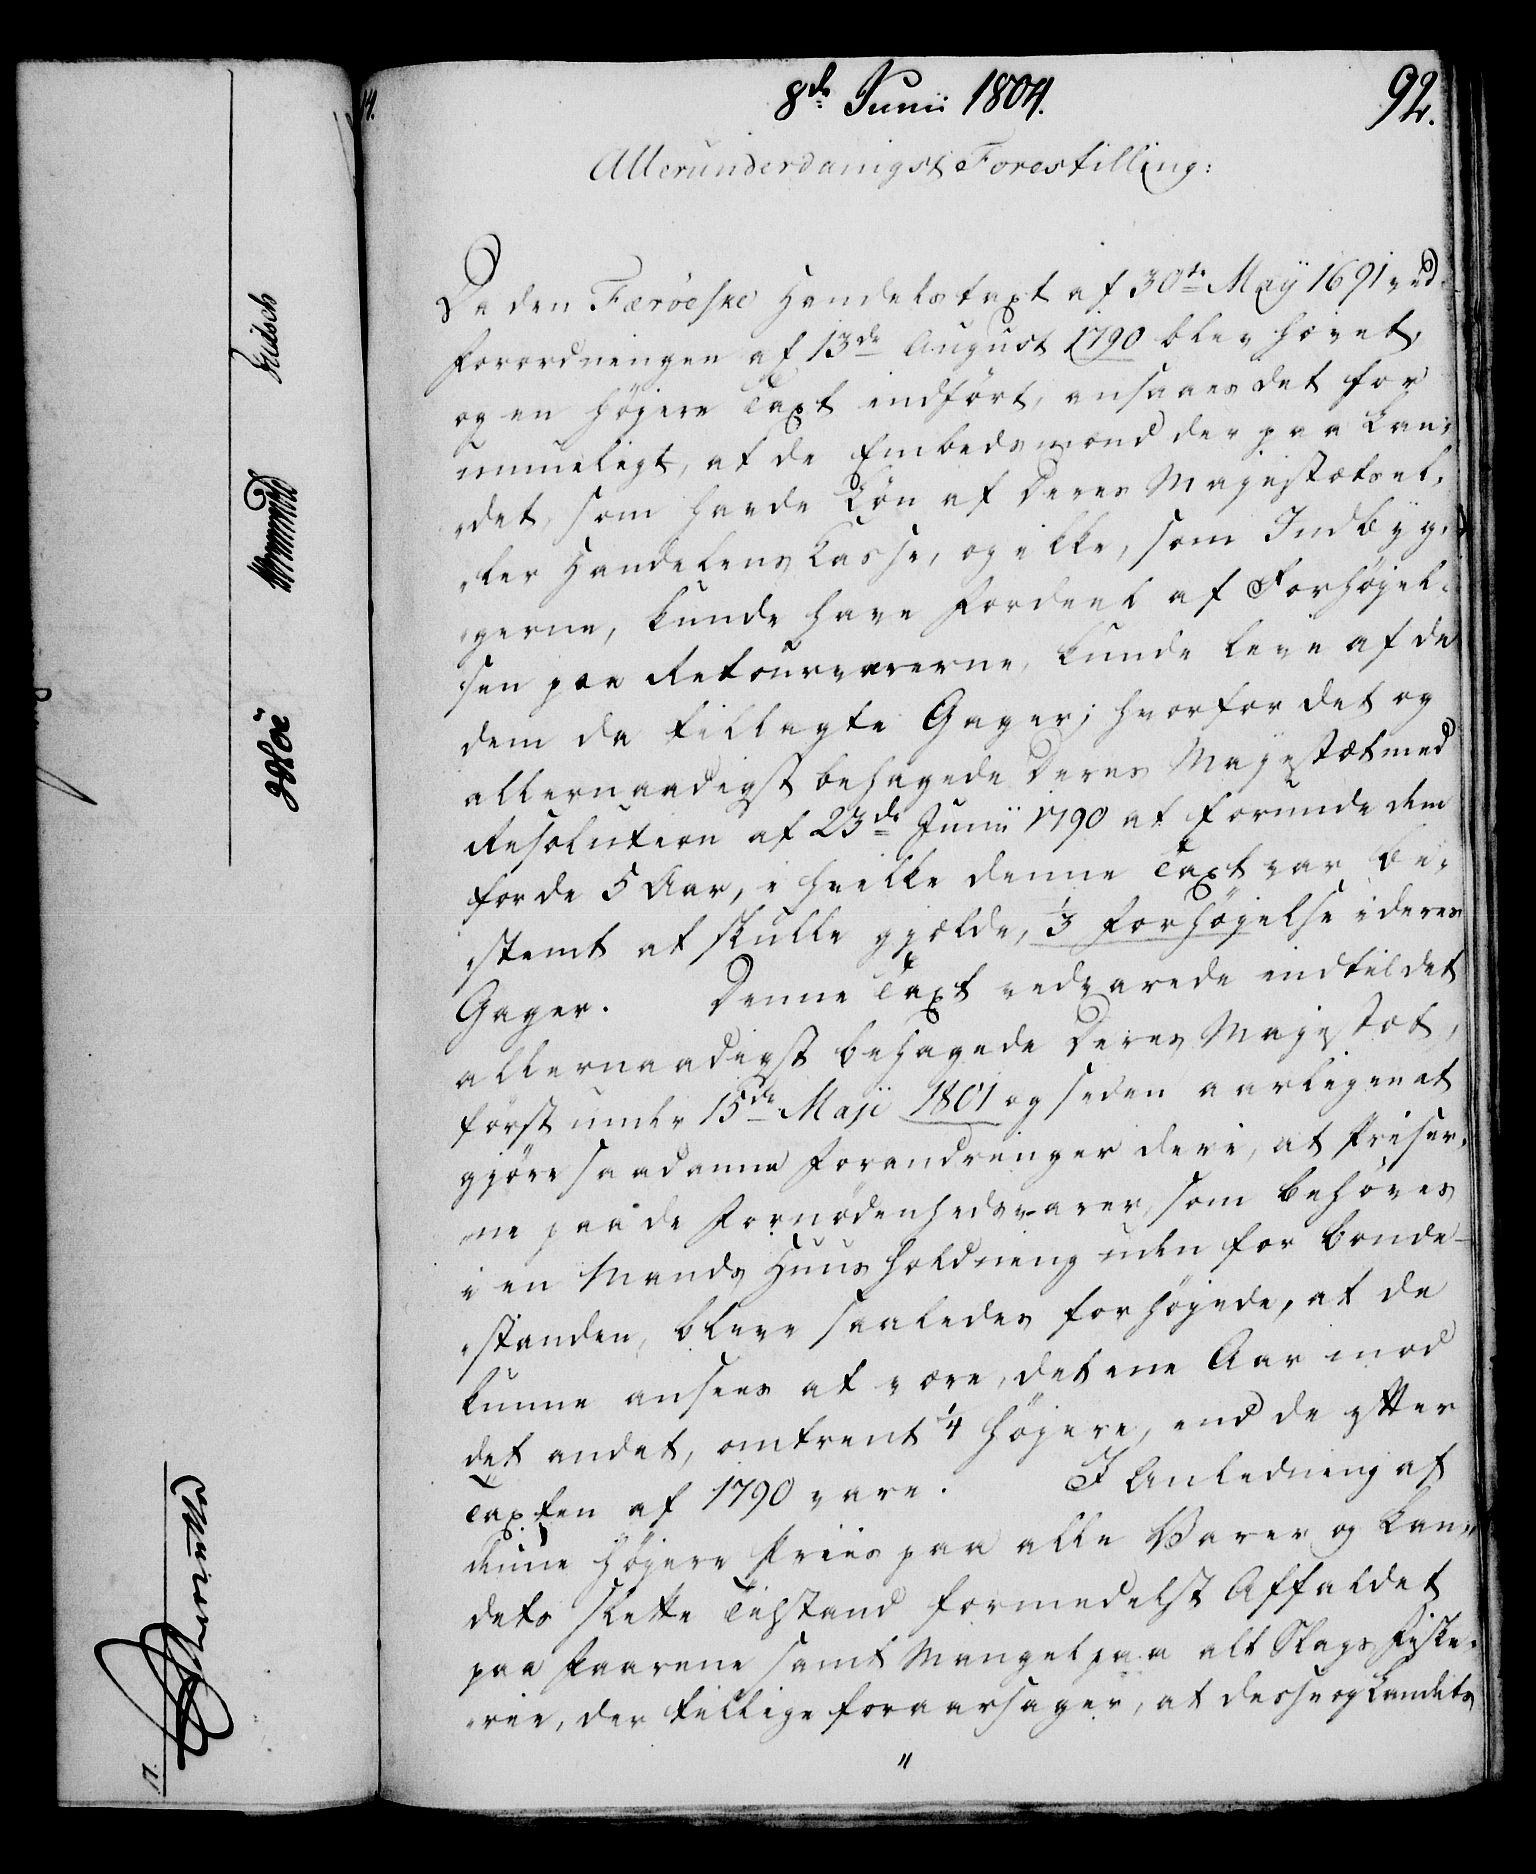 8de Junii 1804.
92.
Allerunderdanigst Forestilling:
Da den Færöeske Handelstaxt af 30te Maÿ 1691 ved
Forordningen af 13de August 1790 blev hævet,
og en höjere Taxt indfört, ansaaes det for
umueligt, at de Embedsmænd der paa Lan-
det, som havde Lön af Deres Majestæts el-
ler Handelens Casse, og ikke, som Indbÿg-
gerne, kunde have Fordeel af Forhöjel-
sen paa Retourvarerne, kunde leve af de
dem da tillagte Gager; hvorfor det og
allernaadigst behagede Deres Majestæt med
Resolution af 23de Junii 1790 at forunde dem
for de 5 Aar, i hvilke denne Taxt var be-
stemt at skulle gjælde, 1/3 Forhöjelse i deres
Gager. Denne Taxt vedvarede indtil det
allernaadigst behagede Deres Majestæt,
först under 15de Maji 1801 og siden aarligen at
gjöre saadanne Forandringer deri, at Priser-
ne paa de Fornödenhedsvarer, som behöves
i en Mands Huusholdning uden for Bonde-
standen, bleve saaledes forhöjede, at de
kunne ansees at være, det ene Aar mod
det andet, omtrent 1/4 höjere, end de efter
Taxten af 1790 vare. I Anledning af
denne höjere Priis paa alle Varer og Lan-
dets slette Tilstand formedelst Affaldet
paa Faarene samt Mangel paa alt Slags Fiske-
rie, der tillige foraarsager, at disse og Landets
"